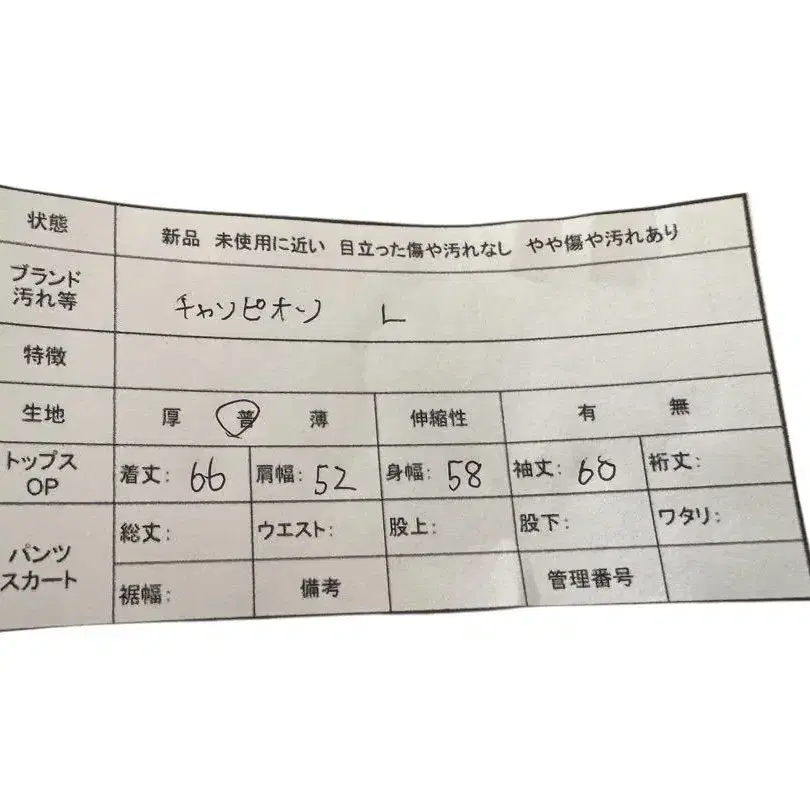 状態 新品 未使用に近い 目立った傷や汚れなし やや傷や汚れあり
ブランド
汚れ等 チャンピオン L
特徴
生地 厚 普 薄 伸縮性 有 無
トップス
OP 着丈: 66 肩幅: 52 身幅: 58 袖丈: 60 裄丈:
パンツ
スカート 総丈: ウエスト: 股上: 股下: ワタリ:
裾幅: 備考 管理番号